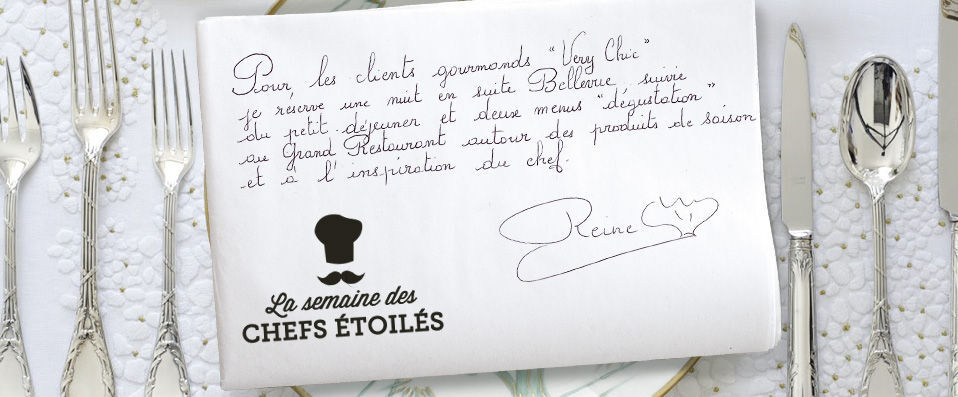 Pour les clients gourmands "Very Chic"
je réserve une nuit en suite Bellevue, suivie
du petit-déjeuner et deux menus "dégustation"
au Grand Restaurant autour des produits de saison
et à l'inspiration du chef.
Reine
La semaine des
CHEFS ÉTOILÉS